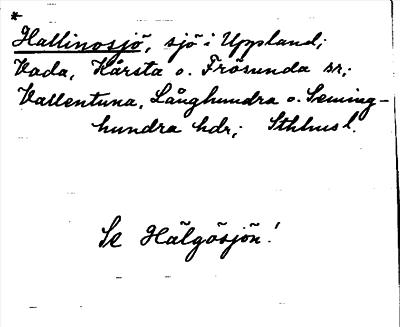 *
Hallinosjö, sjö i Uppland;
Vada, Kårsta o. Frösunda sr;
Vallentuna, Långhundra o. Seming-
hundra hdr; Sthlms l.
Se Hälgösjön!